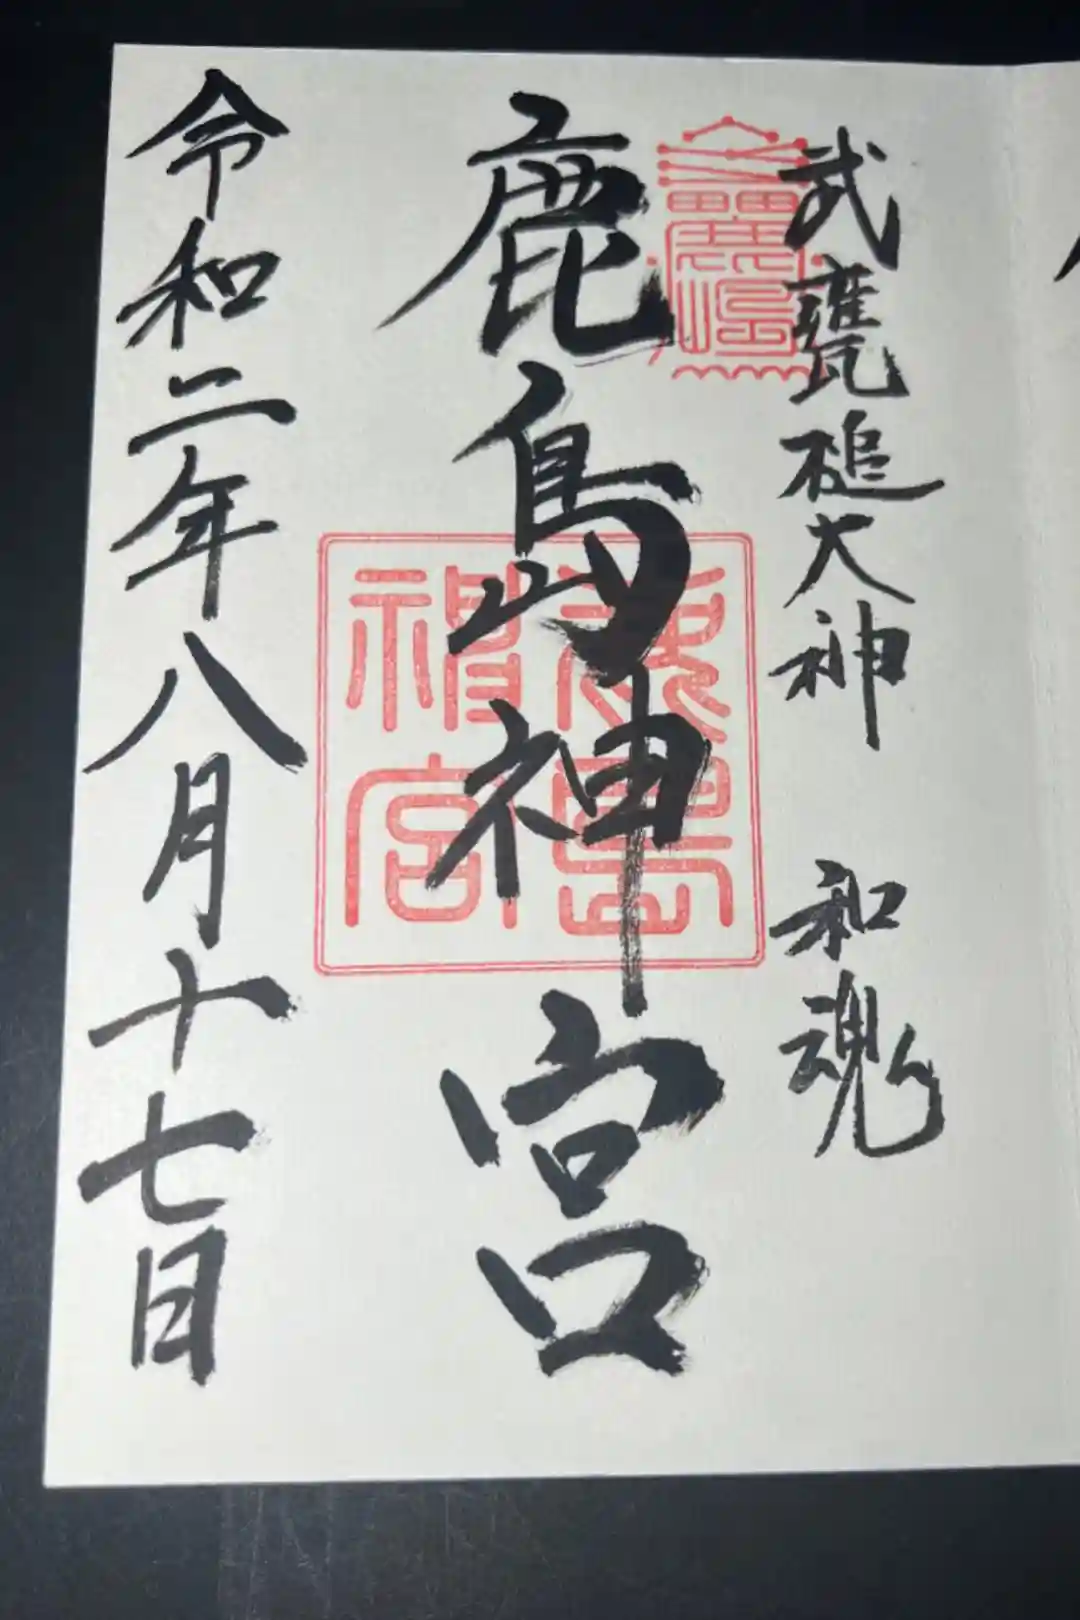 武甕槌大神 和魂
鹿島神宮
鹿島神宮
令和二年八月十七日